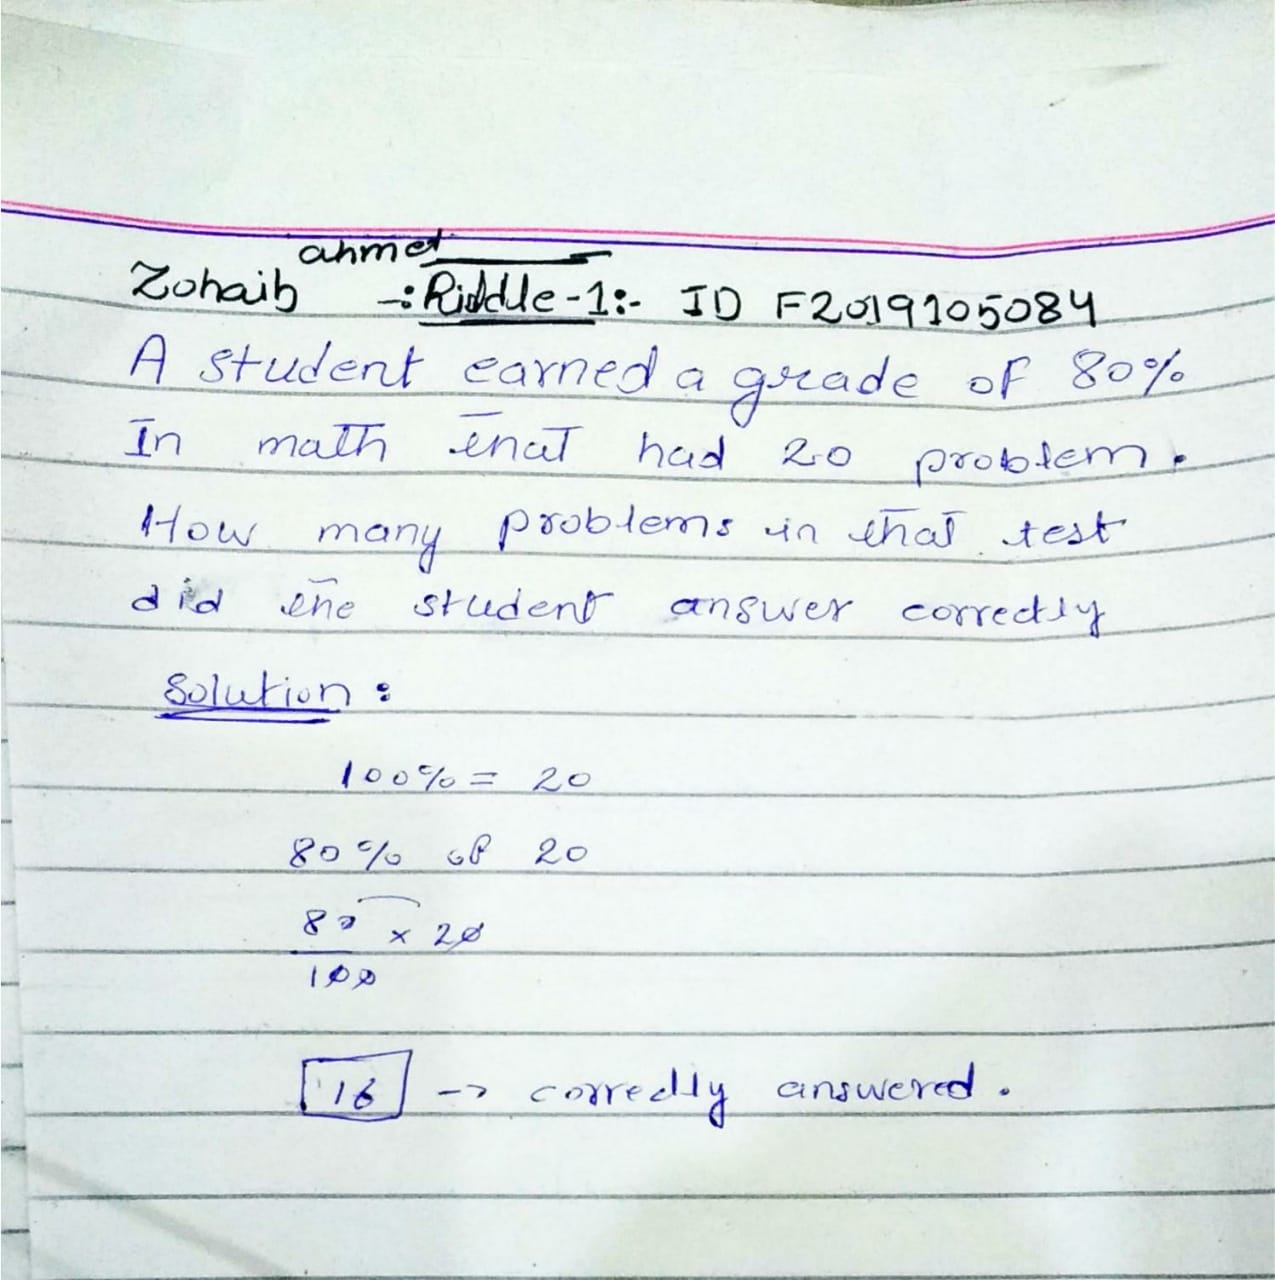 ahmet
Zohaib -: Riddle-1:- ID F2019105084
A student earned a grade of 80%
In math that had 20 problem.
How many problems in that test
did the student answer correctly
Solution :
100% = 20
80% of 20
80 x 20
100
16 -> correctly answered.